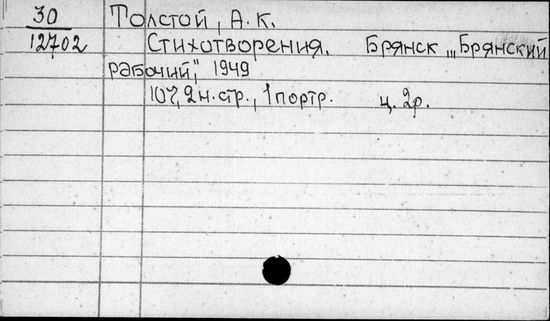 30 Толстой, А. К.
12702 Стихотворения. Брянск „Брянский
рабочий", 1949
107, 2 н. стр., 1 портр. ц. 2р.